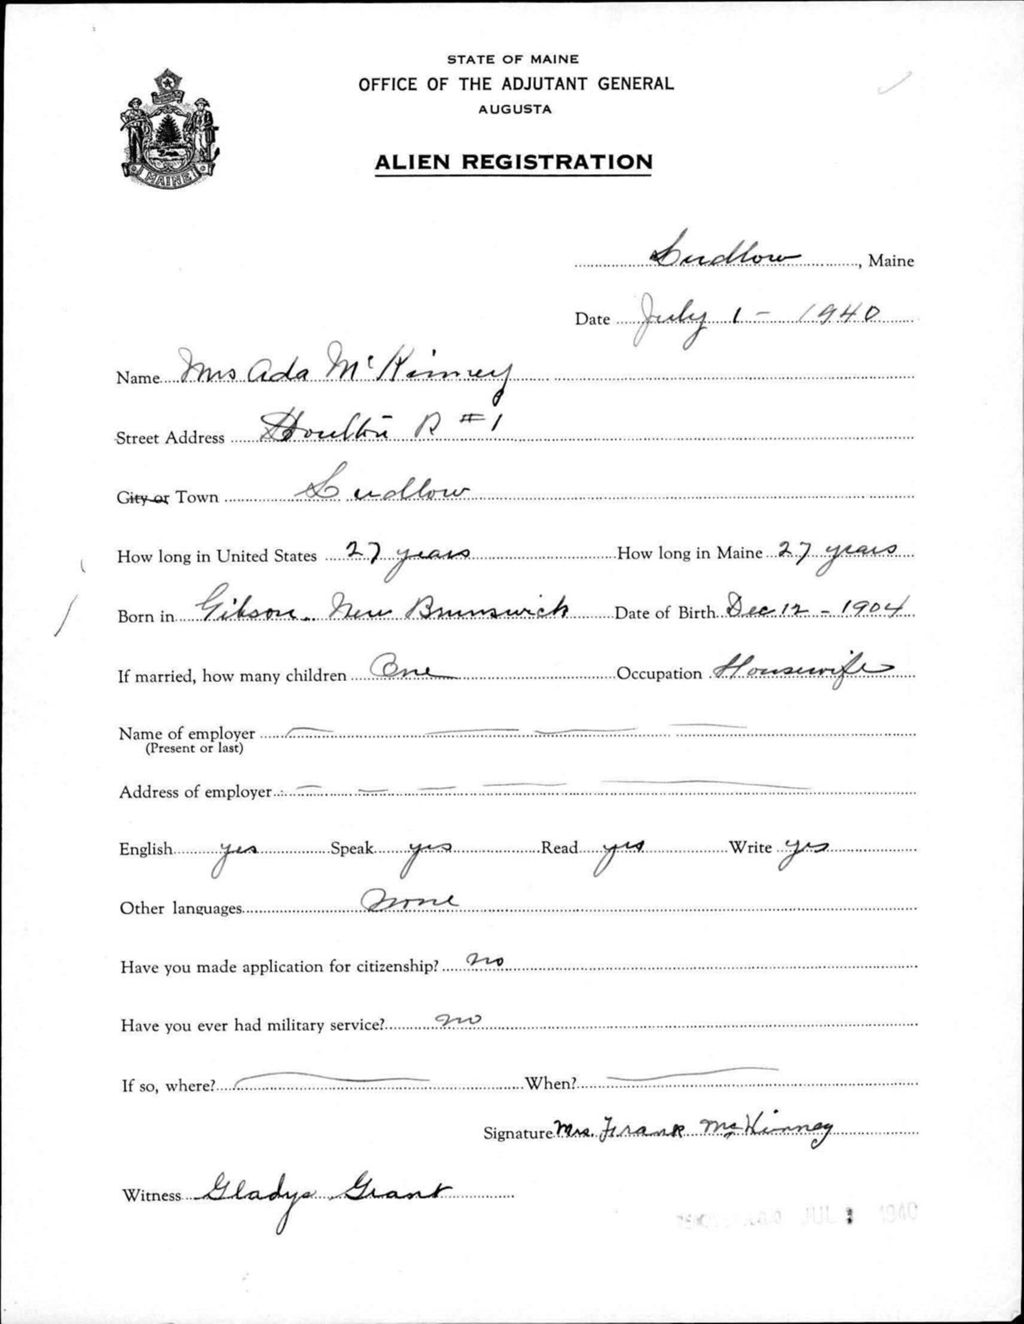 STATE OF MAINE
OFFICE OF THE ADJUTANT GENERAL
AUGUSTA
ALIEN REGISTRATION
MAINE
Ludlow, Maine
Date July 1 - 1940
Name Mrs Ada McKinney
Street Address Houlton R #1
City or Town Ludlow
How long in United States 27 years How long in Maine 27 years
Born in Gibson, New Brunswick Date of Birth Dec 12 - 1904
If married, how many children One Occupation Housewife
Name of employer
(Present or last)
Address of employer
English yes Speak yes Read yes Write yes
Other languages None
Have you made application for citizenship? no
Have you ever had military service? no
If so, where? When?
Signature Mrs. Frank McKinney
Witness Gladys Grant
JUL 1940